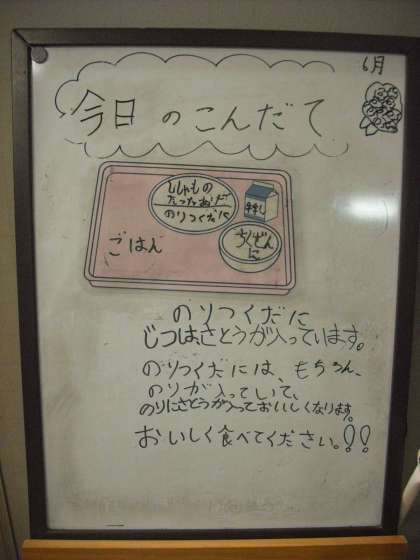 6月
今日のこんだて
ししゃもの
たったあげ
のりつくだに
牛乳
ごはん
ちくぜん
に
のりつくだに
じつは、さとうが入っています。
のりつくだには、もちろん、
のりが入っていて、
のりにさとうが入っておいしくなります。
おいしく食べてください。!!